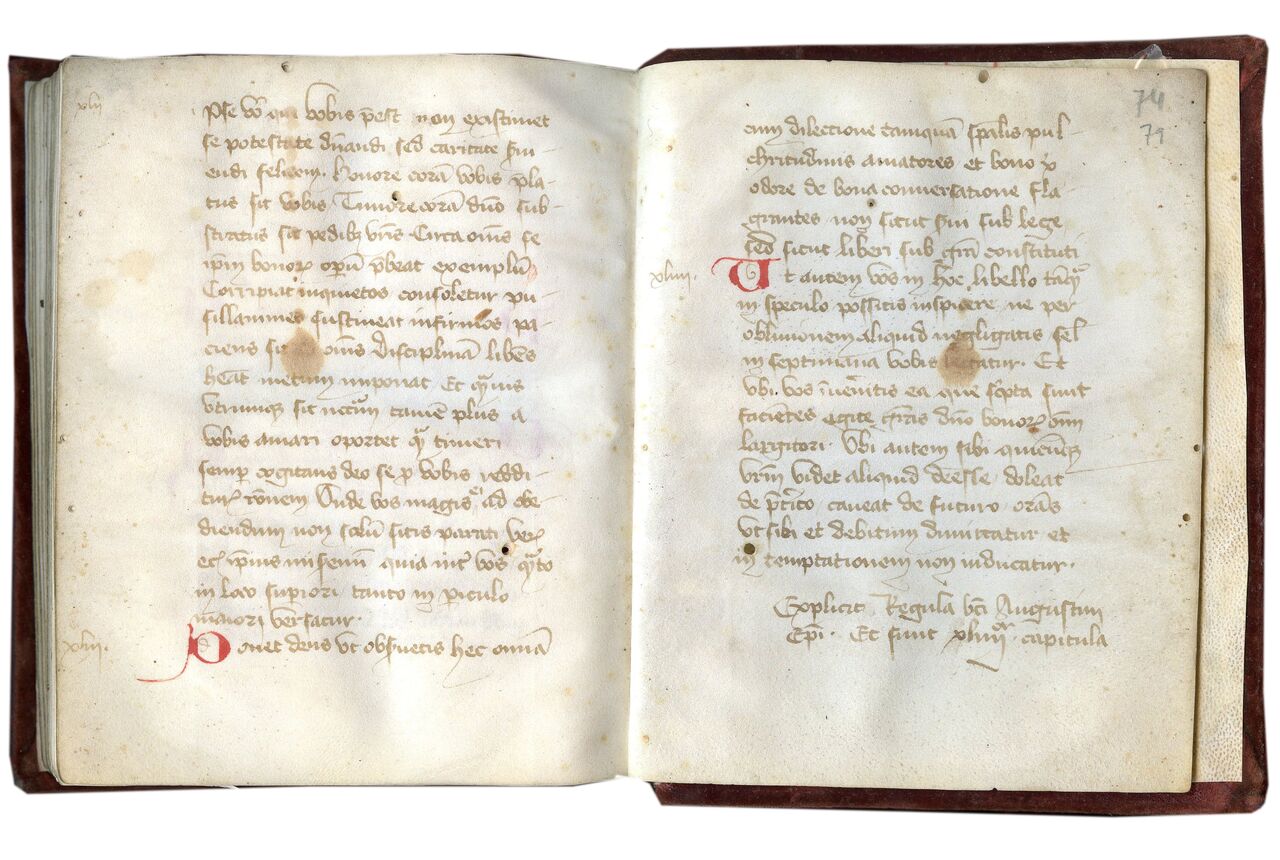 xlij
Ipse vo qui vobis pest non existimet
se potestate dnandi sed caritate sui
endi felicem. Honore cora vobis pla
tus sit vobis Timore cora duo sub
stratus sit pedibz vris Circa oms se
ipm bonor operu pbeat exemplu
Corripiat inquietos consoletur pu
sillanimes sustineat infirmos pa
ciens sit oms disciplina libens
heat metum imponat Et quis
vtrumqz sit nccm tame plus a
vobis amari oportet q timeri
semper cogitans deo se p vobis reddi
tur ronem Vnde vos magis ad obe
diendum non solu sitis parati ver
ec ipius misemi quia int vos qto
in loco supiori tanto in piculo
maiori versatur.
xliij.
Donet deus vt obsuetis hec omia
74
79
cum dilectione tamqua spalis pul
chritudinis amatores et bono x
odore de bona conuersatione fla
grantes non sicut sui sub lege
sed sicut liberi sub gra constituti
xliiij.
Vt autem vos in hoc libello taq
in speculo possitis inspicere ne per
obliuionem aliquid negligatis sel
in septimana vobis legatur. Et
vbi vos iueneritis ea que scpta sunt
facietes agite gras dno bonor oim
largitori. Vbi autem sibi quicuqz
vrm videt aliquid deesse doleat
de pterito caueat de futuro orans
vt sibi et debitum dimittatur et
in temptationem non inducatur.
Explicit Regula bti Augustini
Epi. Et sunt xliiij capitula